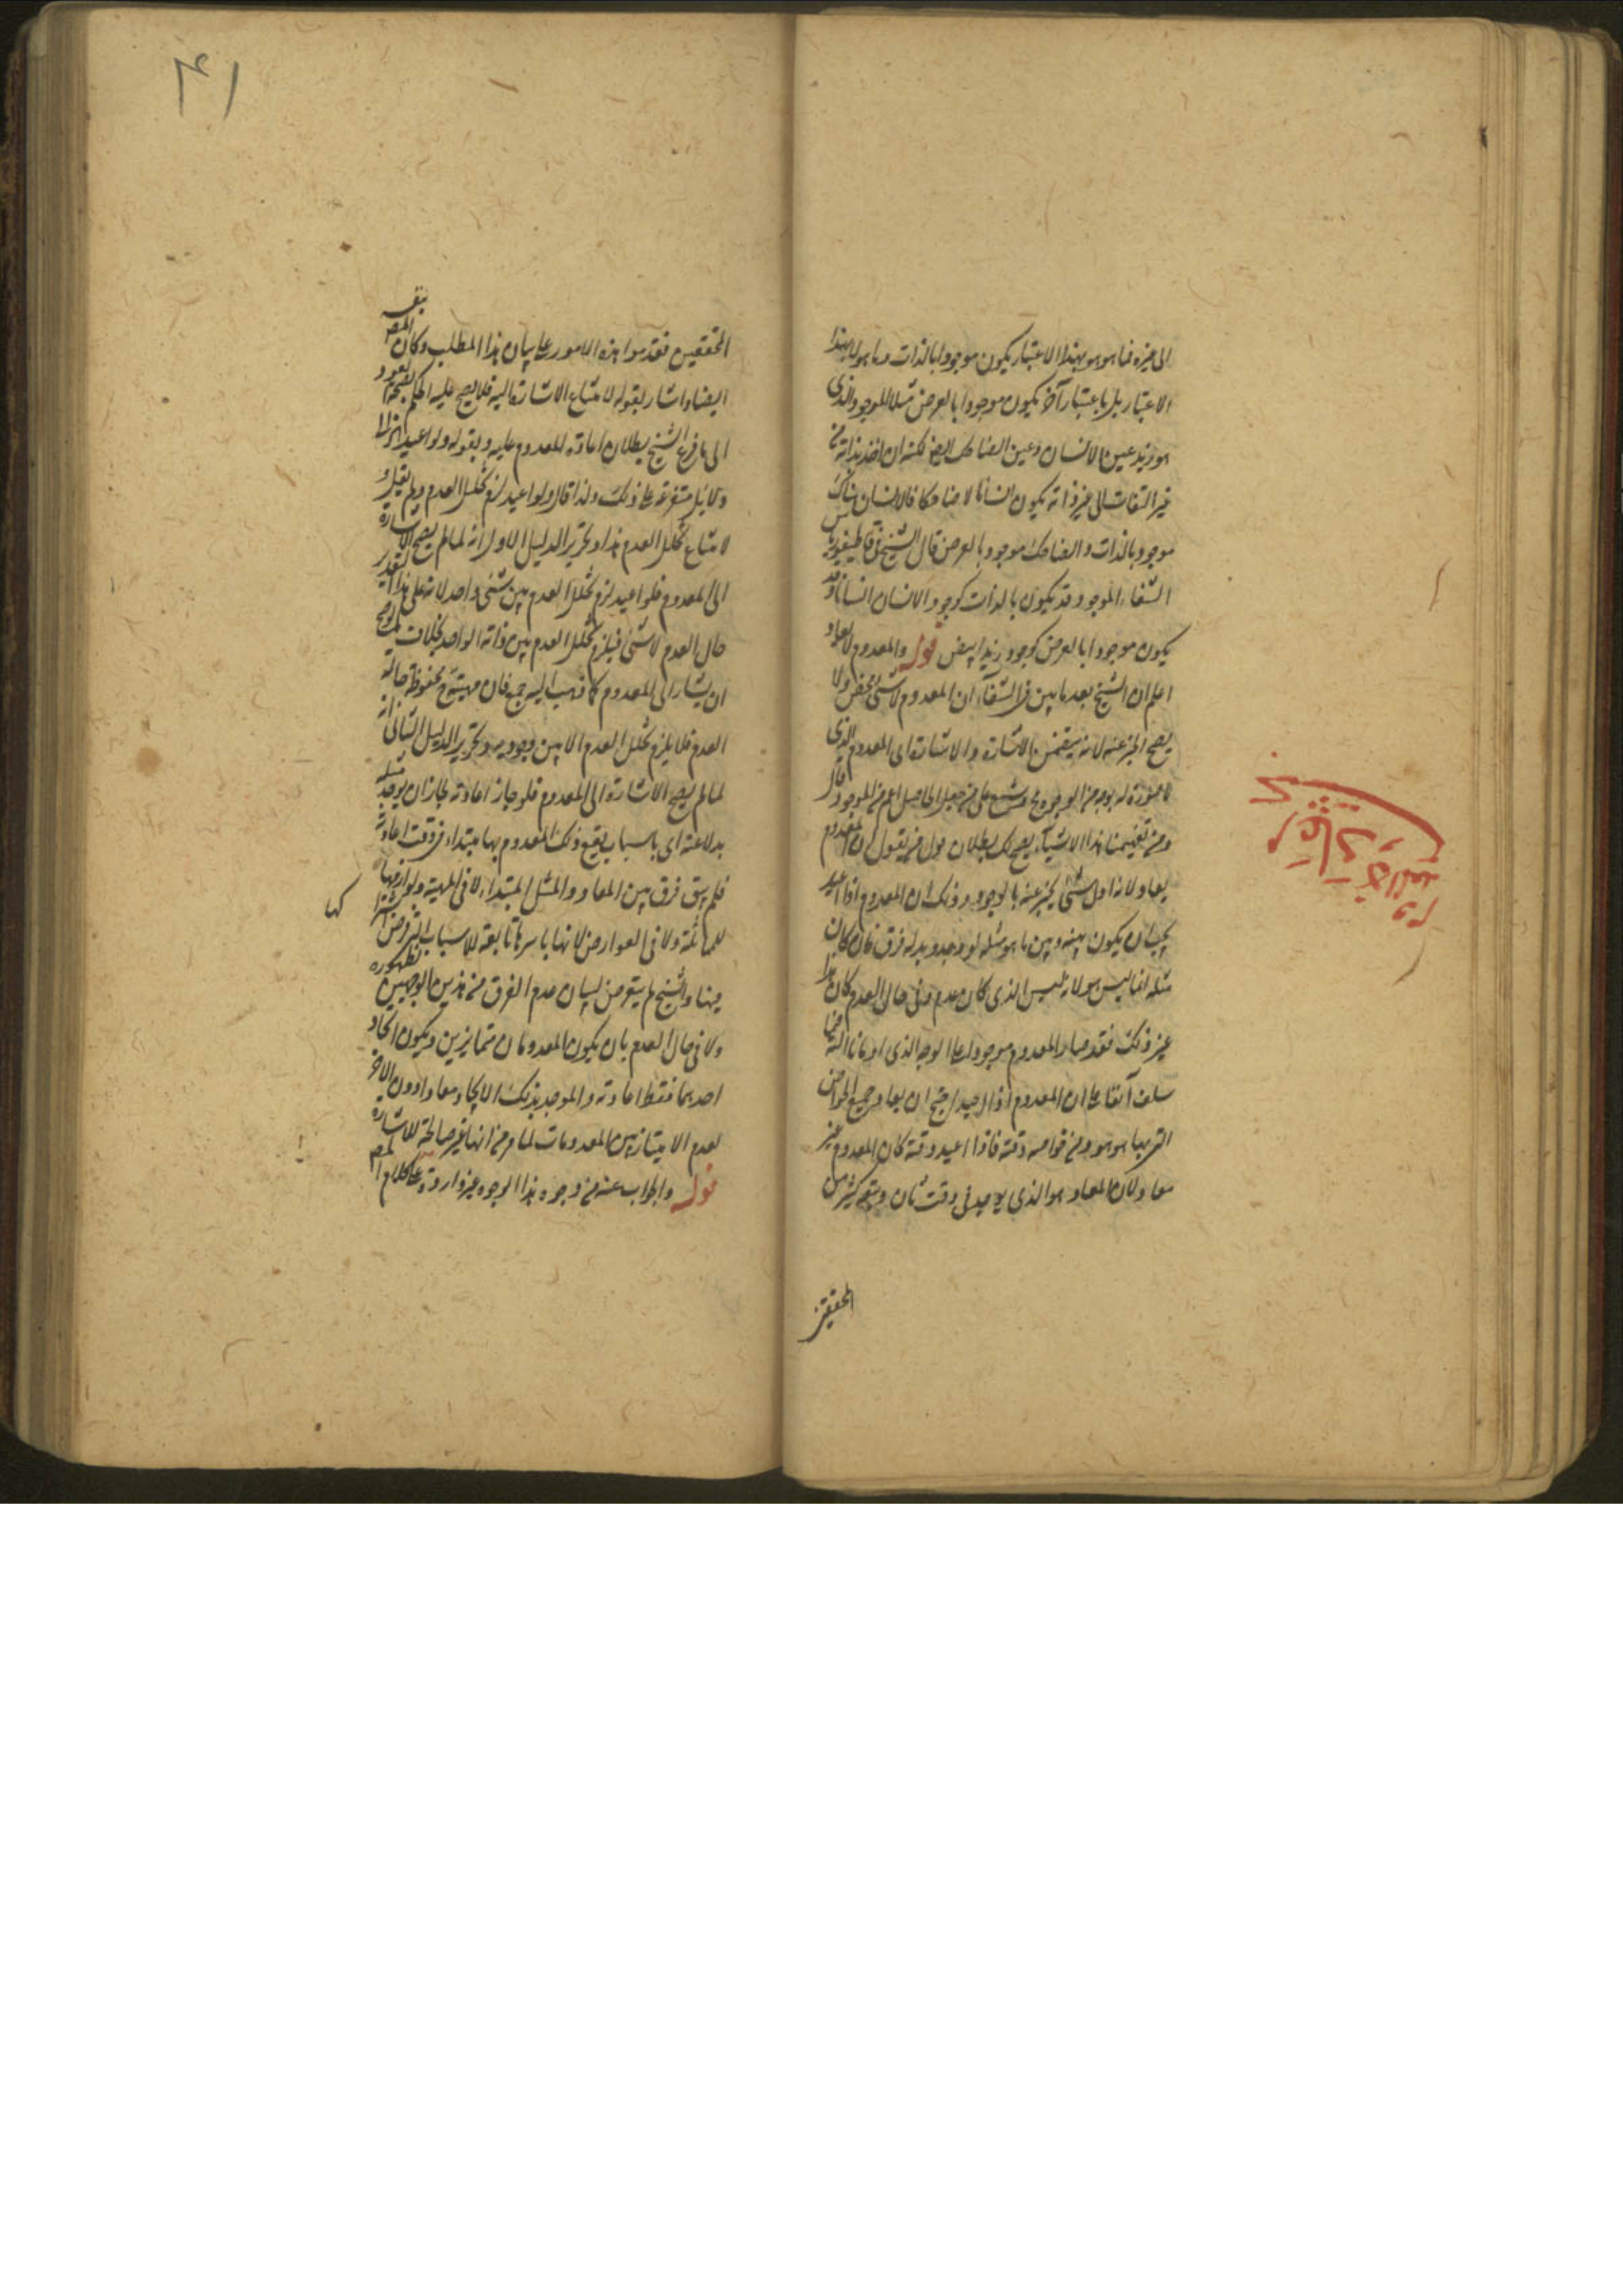 الى غيره فما هو هو بهذا الاعتبار يكون موجودا بالذات وما هو لا بهذا
الاعتبار بل باعتبار آخر يكون موجودا بالعرض مثلا الموجود الذى
هو زيد عين الانسان وعين الضاحك ايضا لكنه ان اخذ بذاته من
غير التفات الى غير ذاته يكون انسانا لا ضاحكا فالانسان هناك
موجود بالذات والضاحك موجود بالعرض قال الشيخ فى قاطيغورياس
الشفاء الموجود قد يكون بالذات كوجود الانسان انسانا وقد
يكون موجودا بالعرض كوجود زيد ابيض قوله والمعدوم لا يعاد
اعلم ان الشيخ بعد ما بين فى الشفاء ان المعدوم لا شئ محض ولا
يصح الخبر عنه لانه يتضمن الاشارة والاشارة الى المعدوم الذى
لا صورة له بوجه من الوجوه مح وشنع على من جعل الحاصل اعم من الموجود قال
ومن تفهيمنا هذه الاشياء يصح لك بطلان قول من يقول ان المعدوم
يعاد لانه اول شئ يخبر عنه بالوجود وذلك ان المعدوم اذا اعيد
يجب ان يكون بينه وبين ما هو مثله لو وجد بدله فرق فان كان
مثله انما ليس هو لانه ليس الذى كان عدم وفى حال العدم كان هذا
غير ذلك فقد صار المعدوم موجودا على الوجه الذى اومانا اليه فيما
سلف آنفا على ان المعدوم اذا اعيد احتيج ان يعاد جميع الخواص
التى بها هو هو ومن خواصه وقته فاذا اعيد وقته كان المعدوم غير
معاد لان المعاد هو الذى يوجد فى وقت ثان وتبعه كثير من
المحققين
المحققين فقدموا هذه الامور على بيان هذا المطلب وكان المص
ايضا واشار بقوله لامتناع الاشارة اليه فلا يصح عليه الحكم بصحة العود
الى ما فرع الشيخ بطلان اعادة المعدوم عليه وبقوله ولو اعيد
دلائل متفرعة على ذلك ولذا قال ولو اعيد لزم تخلل العدم ولم يقل و
لامتناع تخلل العدم هذا وتحرير الدليل الاول انه لما لم يصح الاشارة
الى المعدوم فلو اعيد لزم تخلل العدم بين شئ واحد لانه على هذا التقدير
حال العدم لا شئ فيلزم تخلل العدم بين ذاته الواحد بخلاف ما لو صح
ان يشار الى المعدوم كما ذهب اليه جمع فان مهيته مح محفوظة حالة
العدم فلا يلزم تخلل العدم الا بين وجوديه وتحرير الدليل الثانى انه
لما لم يصح الاشارة الى المعدوم فلو جاز اعادته لجاز ان يوجد مثله
بدلا عنه اى باسباب يقع ذلك المعدوم بها مبتداء فى وقت اعادته
فلم يبق فرق بين المعاد والمثل المبتداء لا فى المهية ولوازمها
للمماثلة ولا فى العوارض لانها باسرها تابعة للاسباب
فيها والشيخ لم يتعرض لبيان عدم الفرق من هذين الوجهين لظهوره
ولا فى حال العدم بان يكون المعدومان متمايزين ويكون ايجاد
احدهما فقط اعادته والموجد بذلك الايجاد معادا دون الاخر
لعدم الامتياز بين المعدومات لما مر من انها غير صالحة للاشارة
قوله والجواب عنه من وجوه هذا الوجوه غير واردة على كلام المص